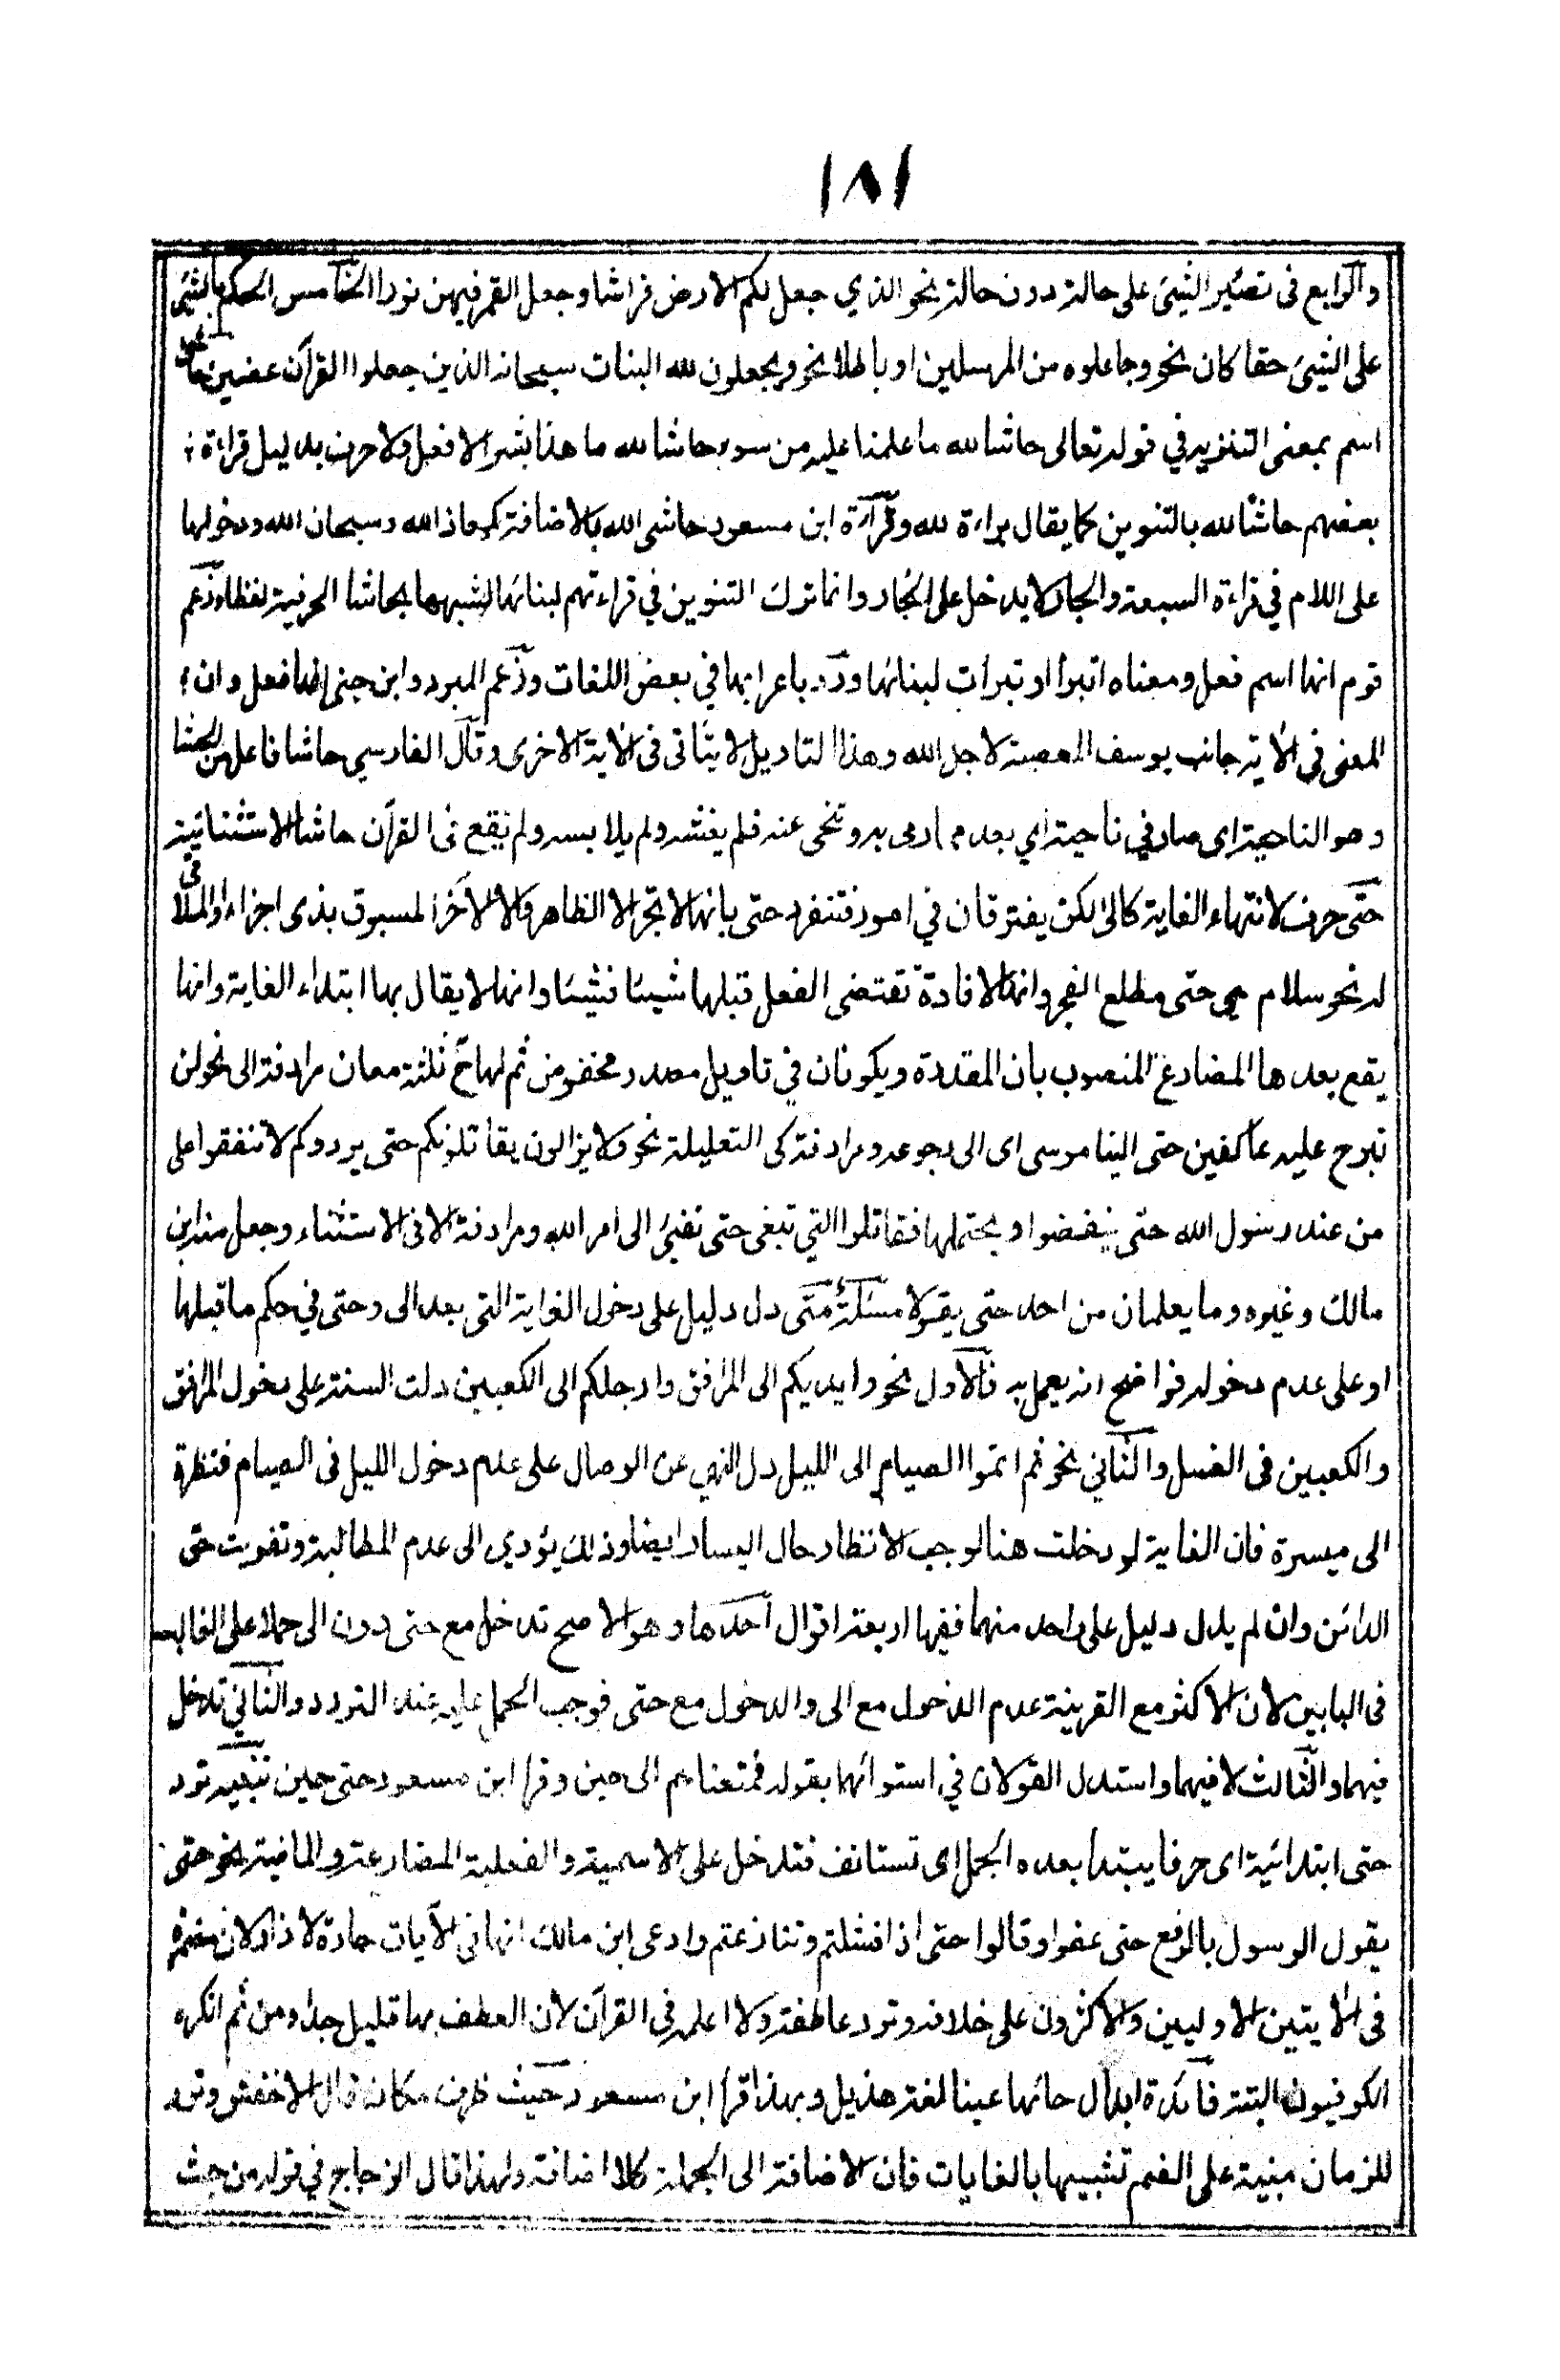 ١٨١
والرابع فى تصئير الشئ على حالة دون حالة نحو الذي جعل لكم الارض فراشا وجعل القمر فيهن نورا الخامس الحكم بالشئ
على الشئ حقا كان نحو وجاعلوه من المرسلين او باطلا نحو ويجعلون لله البنات سبحانه الذين جعلوا القرآن عضين حاشا
اسم بمعنى التنزيه في قوله تعالى حاشا لله ما علمنا عليه من سوء حاشا لله ما هذا بشرا لا فعل ولا حرف بدليل قراءة
بعضهم حاشا لله بالتنوين كما يقال براءة لله وقراءة ابن مسعود حاشى الله بالاضافة كمعاذ الله وسبحان الله ودخولها
على اللام في قراءة السبعة والجار لا يدخل على الجار وانما ترك التنوين في قراءتهم لبنائها لشبهها بحاشا الحرفية لفظا وزعم
قوم انها اسم فعل ومعناه اتبرأ او تبرأت لبنائها ورد باعرابها في بعض اللغات وزعم المبرد وابن جنى انها فعل وان
المعنى في الآية جانب يوسف المعصية لاجل الله وهذا التاويل لا يتأتى فى الآية الاخرى وقال الفارسي حاشا فاعل من الحشا
وهو الناحية اى صار في ناحية اي بعد مما رمى به وتنحى عنه فلم يغشه ولم يلابسه ولم يقع فى القرآن حاشا الا استثنائية
حتى حرف لانتهاء الغاية كالى لكن يفترقان في امور فتنفرد حتى بانها لا تجر الا الظاهر والا الآخر المسبوق بذى اجزاء او الملا
له نحو سلام هي حتى مطلع الفجر وانها لافادة تقتضى الفعل قبلها شيئا فشيئا وانها لا يقال بها ابتداء الغاية وانها
يقع بعدها المضارع المنصوب بان المقدرة ويكونان في تاويل مصدر مخفوض ثم لها ح ثلثة معان مرادفة الى نحو لن
نبرح عليه عاكفين حتى الينا موسى اى الى رجوعه ومرادفة كى التعليلة نحو ولا يزالون يقاتلونكم حتى يردوكم لا تنفقوا على
من عند رسول الله حتى ينفضوا ويحتملها فقاتلوا التي تبغى حتى تفئ الى امر الله ومرادفة الا فى الاستثناء وجعل منه ابن
مالك وغيره وما يعلمان من احد حتى يقولا مسئلة متى دل دليل على دخول الغاية التى بعد الى وحتى في حكم ما قبلها
او على عدم دخوله فواضح انه يعمل به فالاول نحو وايديكم الى المرافق وارجلكم الى الكعبين دلت السنة على دخول المرافق
والكعبين فى الغسل والثاني نحو ثم اتموا الصيام الى الليل دل النهي عن الوصال على عدم دخول الليل فى الصيام فنظرة
الى ميسرة فان الغاية لو دخلت هنا لوجب الانتظار حال اليسار ايضا وذلك يؤدي الى عدم المطالبة وتفويت حق
الدائن وان لم يدل دليل على واحد منهما ففيها اربعة اقوال احدها وهو الاصح تدخل مع حتى دون الى حملا على الغالب
فى البابين لان الاكثر مع القرينة عدم الدخول مع الى والدخول مع حتى فوجب الحمل عليه عند التردد والثاني تدخل
فيهما والثالث لا فيهما واستدل القولان في استوائهما بقوله فمتعناهم الى حين وقرأ ابن مسعود حتى حين تنبيه ترد
حتى ابتدائية اى حرفا يبتدأ بعده الجمل اى تستانف فتدخل على الاسمية والفعلية المضارعة والماضية نحو حتى
يقول الرسول بالرفع حتى عفوا وقالوا حتى اذا فشلتم وتنازعتم وادعى ابن مالك انها فى الآيات جارة لاذا ولان مضمرة
فى الآيتين الاوليين والاكثرون على خلافه وترد عاطفة ولا اعلمه فى القرآن لان العطف بها قليل جدا ومن ثم انكره
الكوفيون البتة فائدة ابدال حائها عينا لغة هذيل وبهذا قرأ ابن مسعود حيث ظرف مكان قال الاخفش وترد
للزمان مبنية على الضم تشبيها بالغايات فان الاضافة الى الجملة كلا اضافة ولهذا قال الزجاج في قوله من حيث